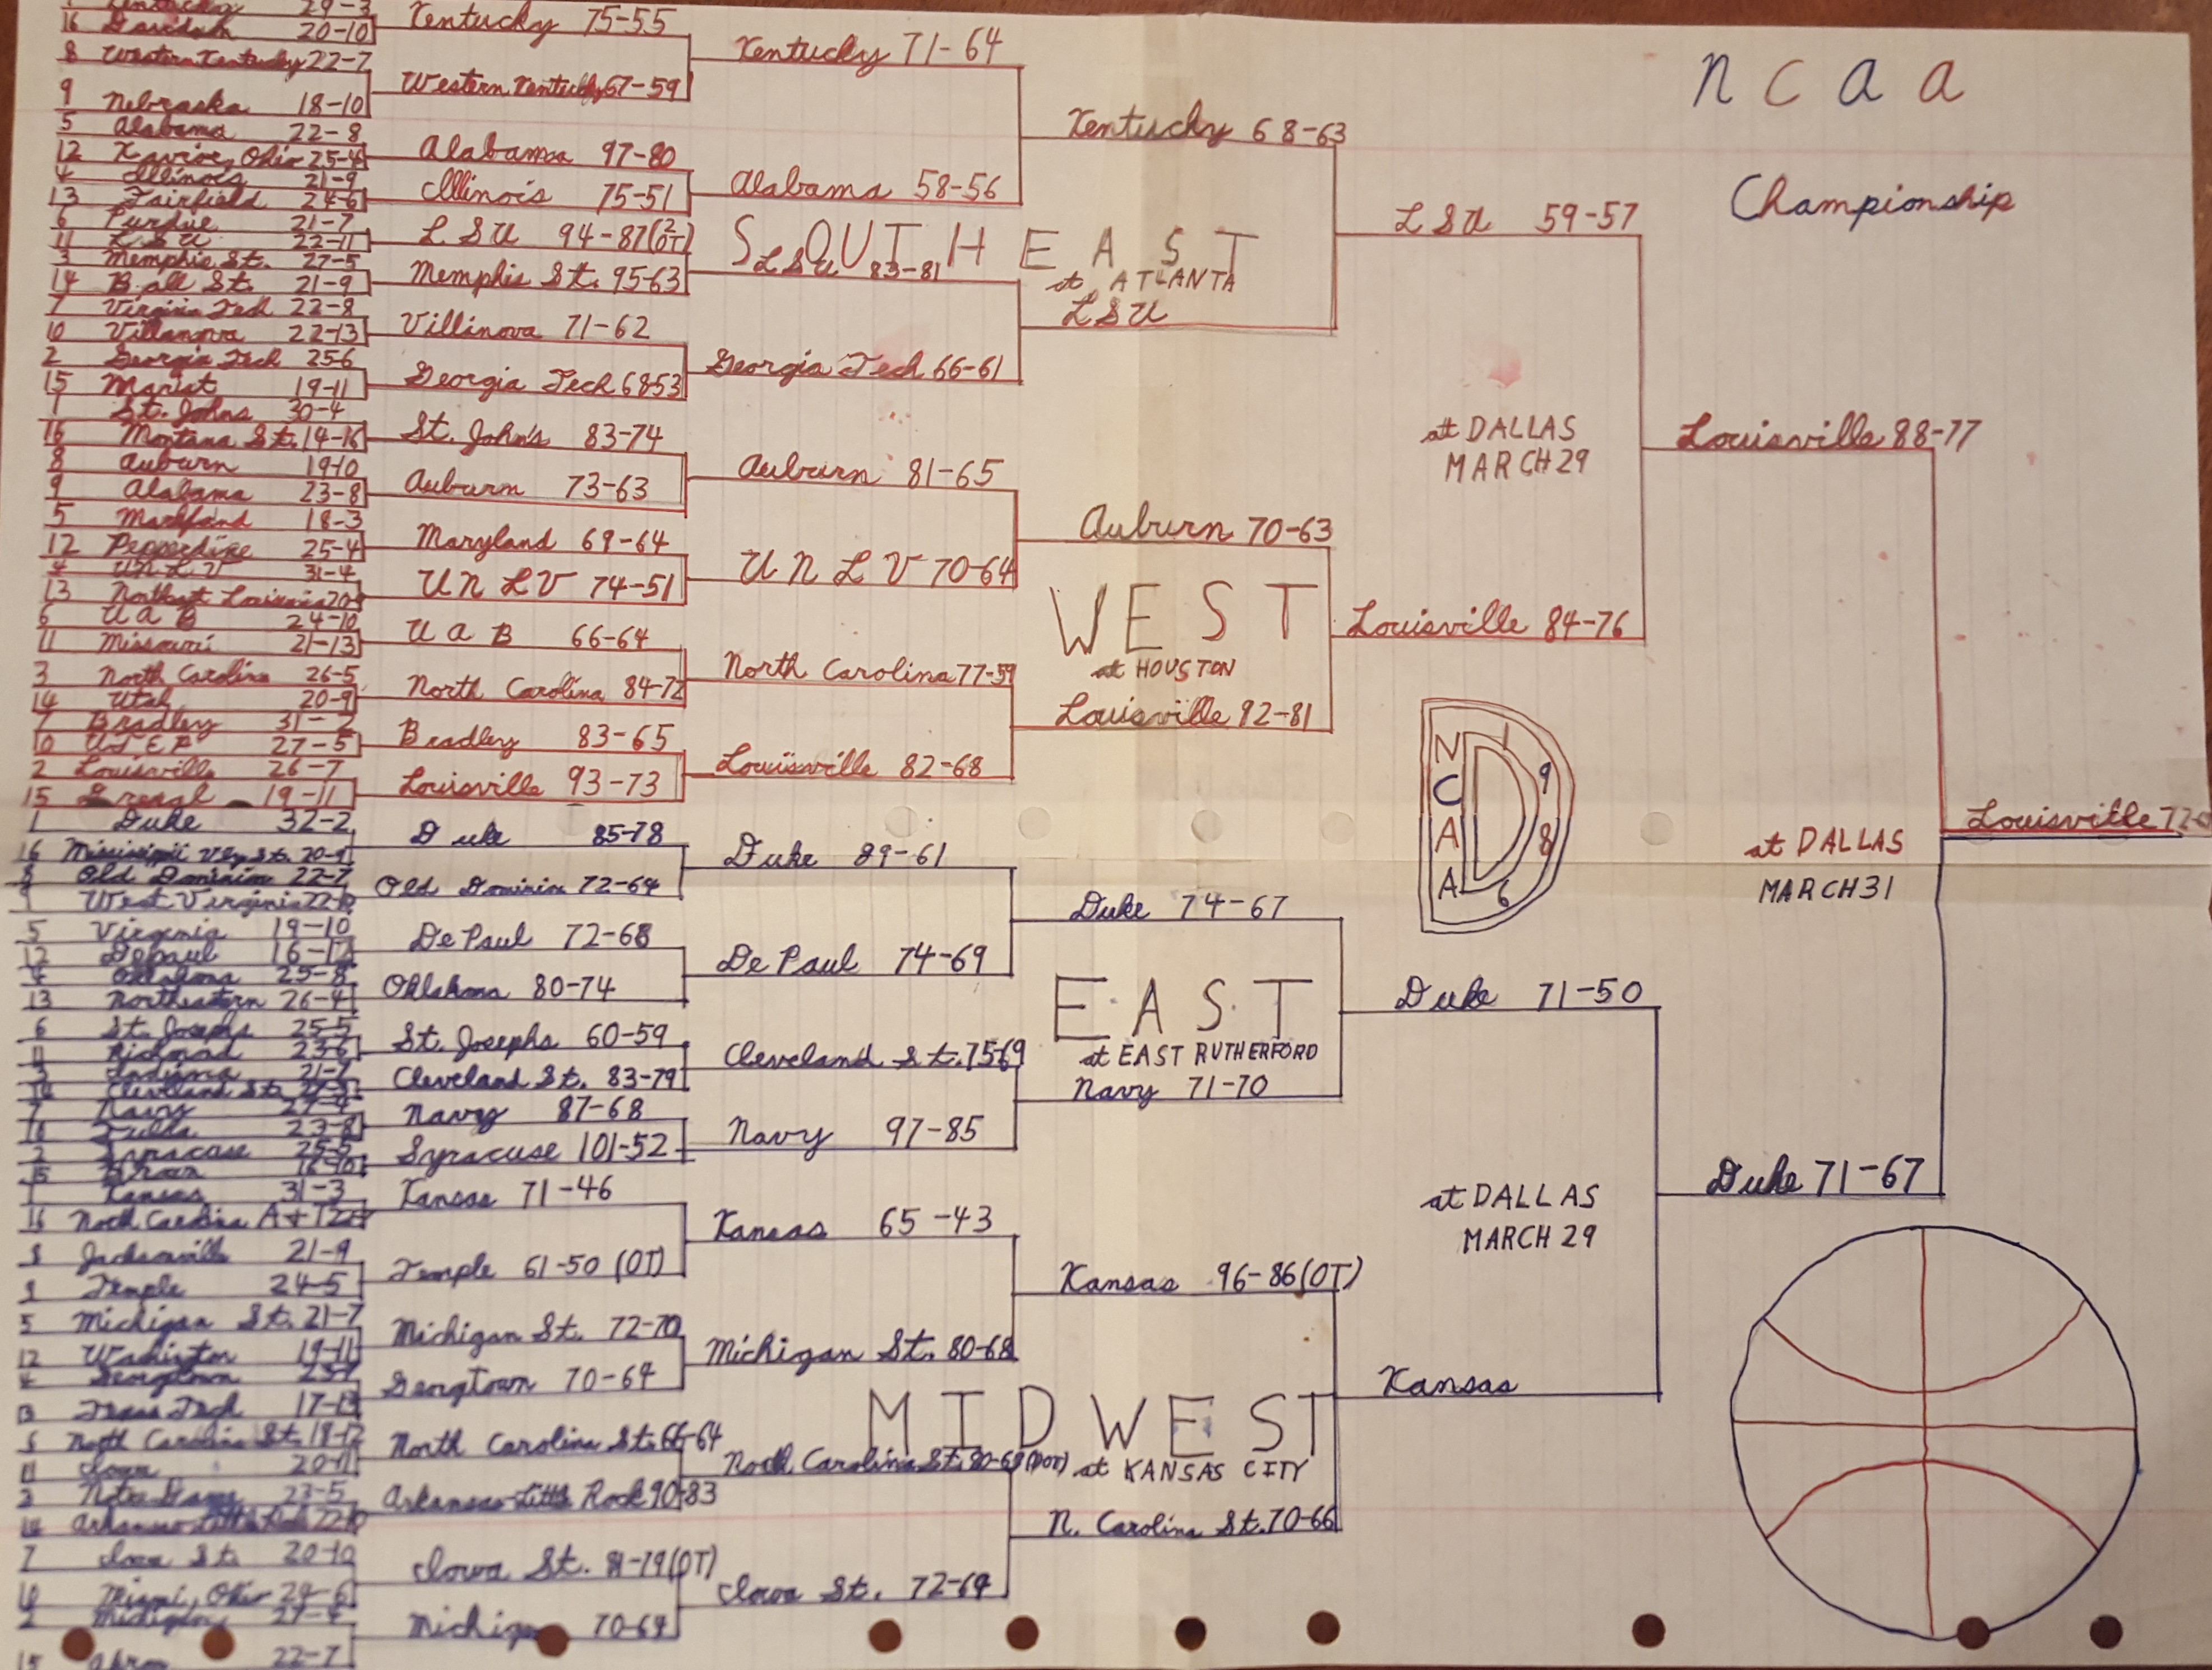 Kentucky 29-3
16 Davidson 20-10
8 Western Kentucky 22-7
9 Nebraska 18-10
5 Alabama 22-8
12 Xavier, Ohio 25-4
4 Illinois 21-9
13 Fairfield 24-6
6 Purdue 21-7
11 L S U 22-11
3 Memphis St. 27-5
14 Ball St. 21-9
7 Virginia Tech 22-8
10 Villanova 22-13
2 Georgia Tech 25-6
15 Marist 19-11
1 St. Johns 30-4
16 Montana St. 14-16
8 Auburn 19-10
9 Alabama 23-8
5 Maryland 18-3
12 Pepperdine 25-4
4 U N L V 31-4
13 Northeast Louisiana 20-
6 U A B 24-10
11 Missouri 21-13
3 North Carolina 26-5
14 Utah 20-9
7 Bradley 31-2
10 U T E P 27-5
2 Louisville 26-7
15 Drexal 19-11
1 Duke 32-2
16 Mississippi Vly St. 20-
8 Old Dominion 22-7
9 West Virginia 22-
5 Virginia 19-10
12 Depaul 16-12
4 Oklahoma 25-8
13 Northeastern 26-4
6 St. Josephs 25-5
11 Richmond 23-6
3 Indiana 21-7
14 Cleveland St.
7 Navy 27-4
10 Tulsa 23-8
2 Syracuse 25-5
15 Brown 16-10
1 Kansas 31-3
16 North Carolina A+T 22-
8 Jacksonville 21-9
9 Temple 24-5
5 Michigan St. 21-7
12 Washington 19-11
4 Georgtown 23-7
13 Texas Tech 17-13
6 North Carolina St. 18-12
11 Iowa 20-11
3 Notre Dame 23-5
14 Arkansas-Little Rock 22-10
7 Iowa St. 20-10
10 Miami, Ohio 24-6
2 Michigan 27-4
15 Akron 22-7
Kentucky 75-55
Western Kentucky 67-59
Alabama 97-80
Illinois 75-51
L S U 94-87 (2 OT)
Memphis St. 95-63
Villinova 71-62
Georgia Tech 68-53
St. John's 83-74
Auburn 73-63
Maryland 69-64
U N L V 74-51
U A B 66-64
North Carolina 84-72
Bradley 83-65
Louisville 93-73
Duke 85-78
Old Dominion 72-64
De Paul 72-68
Oklahoma 80-74
St. Josephs 60-59
Cleveland St. 83-79
Navy 87-68
Syracuse 101-52
Kansas 71-46
Temple 61-50 (OT)
Michigan St. 72-70
Georgtown 70-64
North Carolina St. 66-64
Arkansas-Little Rock 90-83
Iowa St. 81-79 (OT)
Michigan 70-64
Kentucky 71-64
Alabama 58-56
L S U 83-81
Georgia Tech 66-61
Auburn 81-65
U N L V 70-64
North Carolina 77-59
Louisville 82-68
Duke 89-61
De Paul 74-69
Cleveland St. 75-69
Navy 97-85
Kansas 65-43
Michigan St. 80-68
North Carolina St. 80-69 (2OT)
Iowa St. 72-69
Kentucky 68-63
SOUTHEAST
at ATLANTA
L S U
Auburn 70-63
WEST
at HOUSTON
Louisville 92-81
Duke 74-67
EAST
at EAST RUTHERFORD
Navy 71-70
Kansas 96-86 (OT)
MIDWEST
at KANSAS CITY
N. Carolina St. 70-66
L S U 59-57
at DALLAS
MARCH 29
Louisville 84-76
NCAA
1986
D
Duke 71-50
at DALLAS
MARCH 29
Kansas
N C A A
Championship
Louisville 88-77
at DALLAS
MARCH 31
Duke 71-67
Louisville 72-